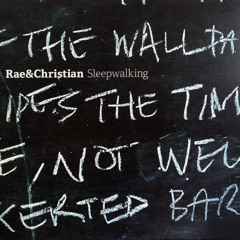 F THE WALLPA
Rae&Christian Sleepwalking
IPES THE TIM
E, NOT WEL
CERTED BAR